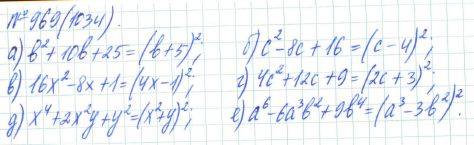 № 969(1034).
а) b²+10b+25=(b+5)²; б) c²-8c+16=(c-4)²;
в) 16x²-8x+1=(4x-1)²; г) 4c²+12c+9=(2c+3)²;
д) x⁴+2x²y+y²=(x²+y)²; е) a⁶-6a³b²+9b⁴=(a³-3b²)².